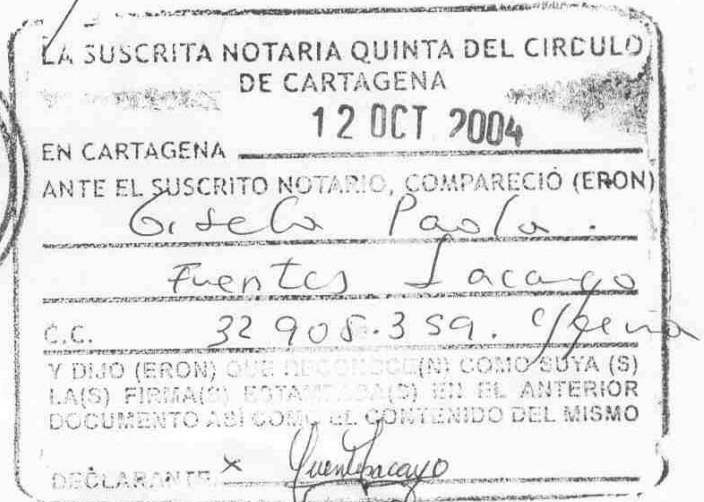 LA SUSCRITA NOTARIA QUINTA DEL CIRCULO
DE CARTAGENA
12 OCT 2004
EN CARTAGENA
ANTE EL SUSCRITO NOTARIO, COMPARECIÓ (ERON)
Gisela Paola.
Fuentes Lacayo
C.C. 32 908.359. C/gena
Y DIJO (ERON) QUE RECONOCE(N) COMO SUYA (S)
LA(S) FIRMA(S) ESTAMPADA(S) EN EL ANTERIOR
DOCUMENTO ASÍ COMO EL CONTENIDO DEL MISMO
DECLARANTE x